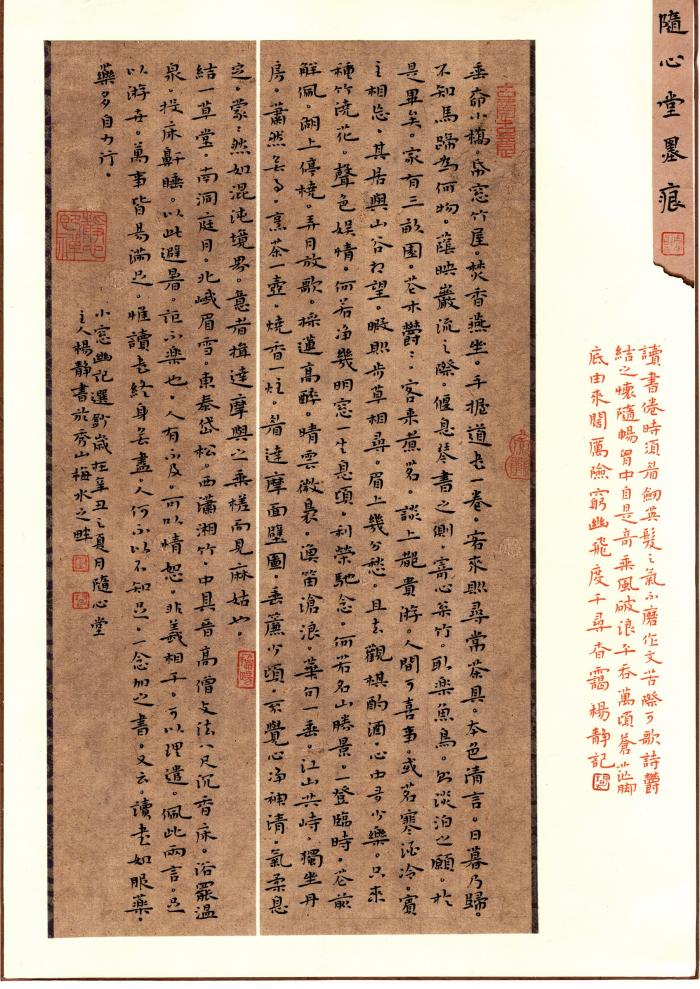 隨心堂墨痕
讀書倦時須看劍英發之氣不磨作文苦際可歌詩鬱
結之懷隨暢胸中自是奇乘風破浪平吞萬頃蒼茫腳
底由來闊厲險窮幽飛度千尋杳靄楊靜記
垂柳小橋。紙窓竹屋。焚香燕坐。手握道書一卷。客來則尋常茶具。本色清言。日暮乃歸。
不知馬蹄為何物。蔭映巖流之際。偃息琴書之側。寄心松竹。取樂魚鳥。則淡泊之願。於
是畢矣。家有三畝園。花木鬱:。客來煮茗。談上都貴游。人間可喜事。或茗寒酒冷。賓
主相忘。其居與山谷相望。暇則步草相尋。眉上幾分愁。且去觀棋酌酒。心中多少樂。只來
種竹澆花。聲色娛情。何若淨幾明窓一生息頃。利榮馳念。何若名山勝景。一登臨時。花前
解佩。湖上停橈。弄月放歌。採蓮高醉。晴雲微裊。漁笛滄浪。華句一垂。江山共峙。獨坐丹
房。蕭然無事。烹茶一壺。燒香一炷。看達摩面壁圖。垂簾少頃。不覺心淨神清。氣柔息
定。蒙:然如混沌境界。意者揖達摩與之乘槎而見麻姑也。
結一草堂。南洞庭月。北峨眉雪。東泰岱松。西瀟湘竹。中具晉高僧支法八尺沉香床。浴罷溫
泉。投床鼾睡。以此避暑。詎不樂也。人有不及。可以情恕。非義相干。可以理遣。佩此兩言。足
以游世。萬事皆易滿足。惟讀書終身無盡。人何不以不知足。一念加之書。又云。讀書如服藥。
藥多自力行。
小窓幽記選鈔歲在辛丑之夏月隨心堂
主人楊靜書於秀山梅水之畔